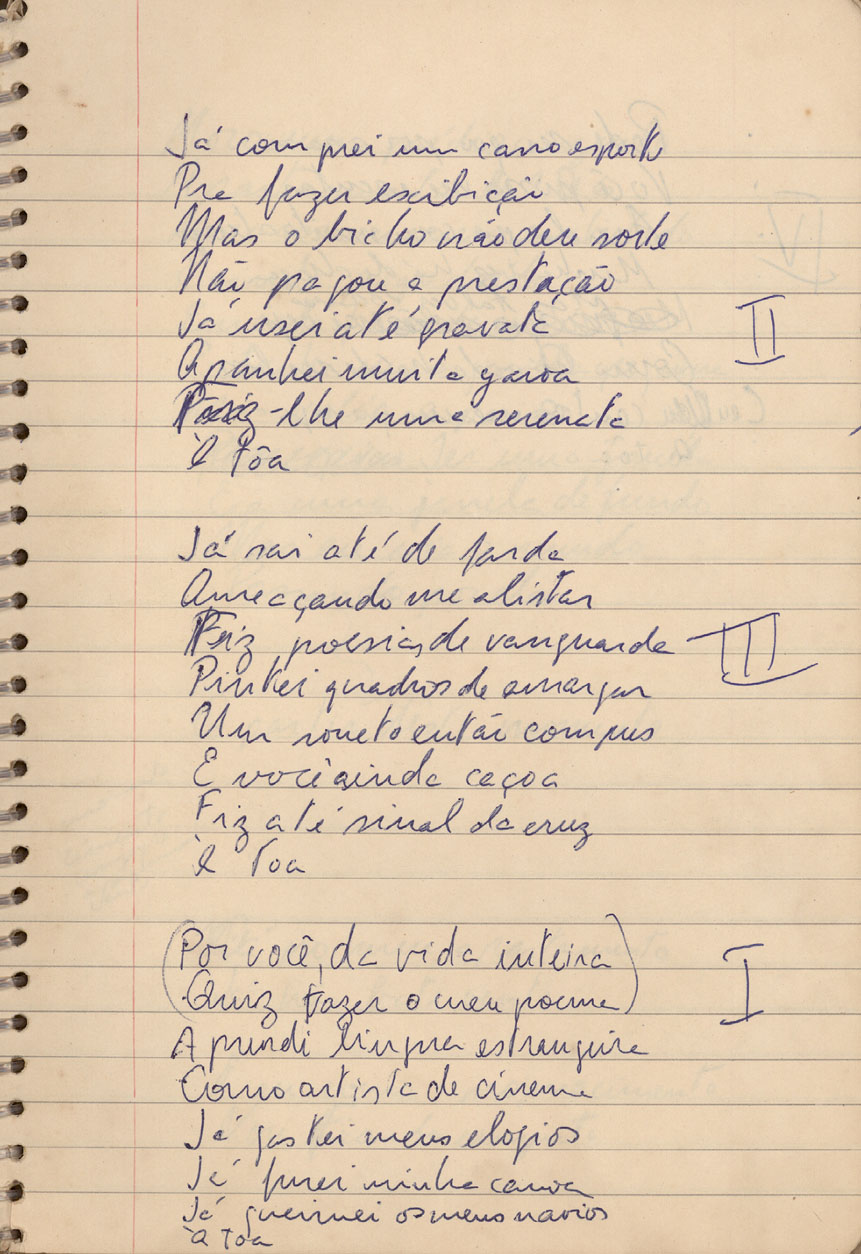 Já comprei um carro esporte
Pra fazer exibição
Mas o bicho não deu sorte
Não pagou a prestação
Já usei até gravata
II
Apanhei muita garoa
Fiz-lhe uma serenata
À tôa
Já saí até de farda
Ameaçando me alistar
Fiz poesias de vanguarda
III
Pintei quadros de amargar
Um soneto então compus
E você ainda caçoa
Fiz até sinal da cruz
À toa
(Por você, da vida inteira
I
Quiz fazer o meu poema)
Aprendi língua estrangeira
Como artista de cinema
Já gastei meus elogios
Já furei minha canoa
Já queimei os meus navios
À toa